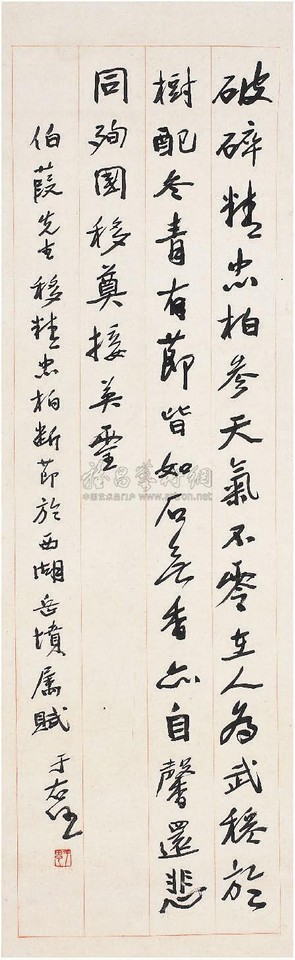 破碎精忠柏參天氣不零在人為武穆於
樹配冬青有節皆如石無香亦自馨還悲
同殉國移奠接英靈
伯葭先生移精忠柏斷節於西湖岳墳屬賦
于右任
雅昌藝術網
中国艺术品门户 www.artron.net